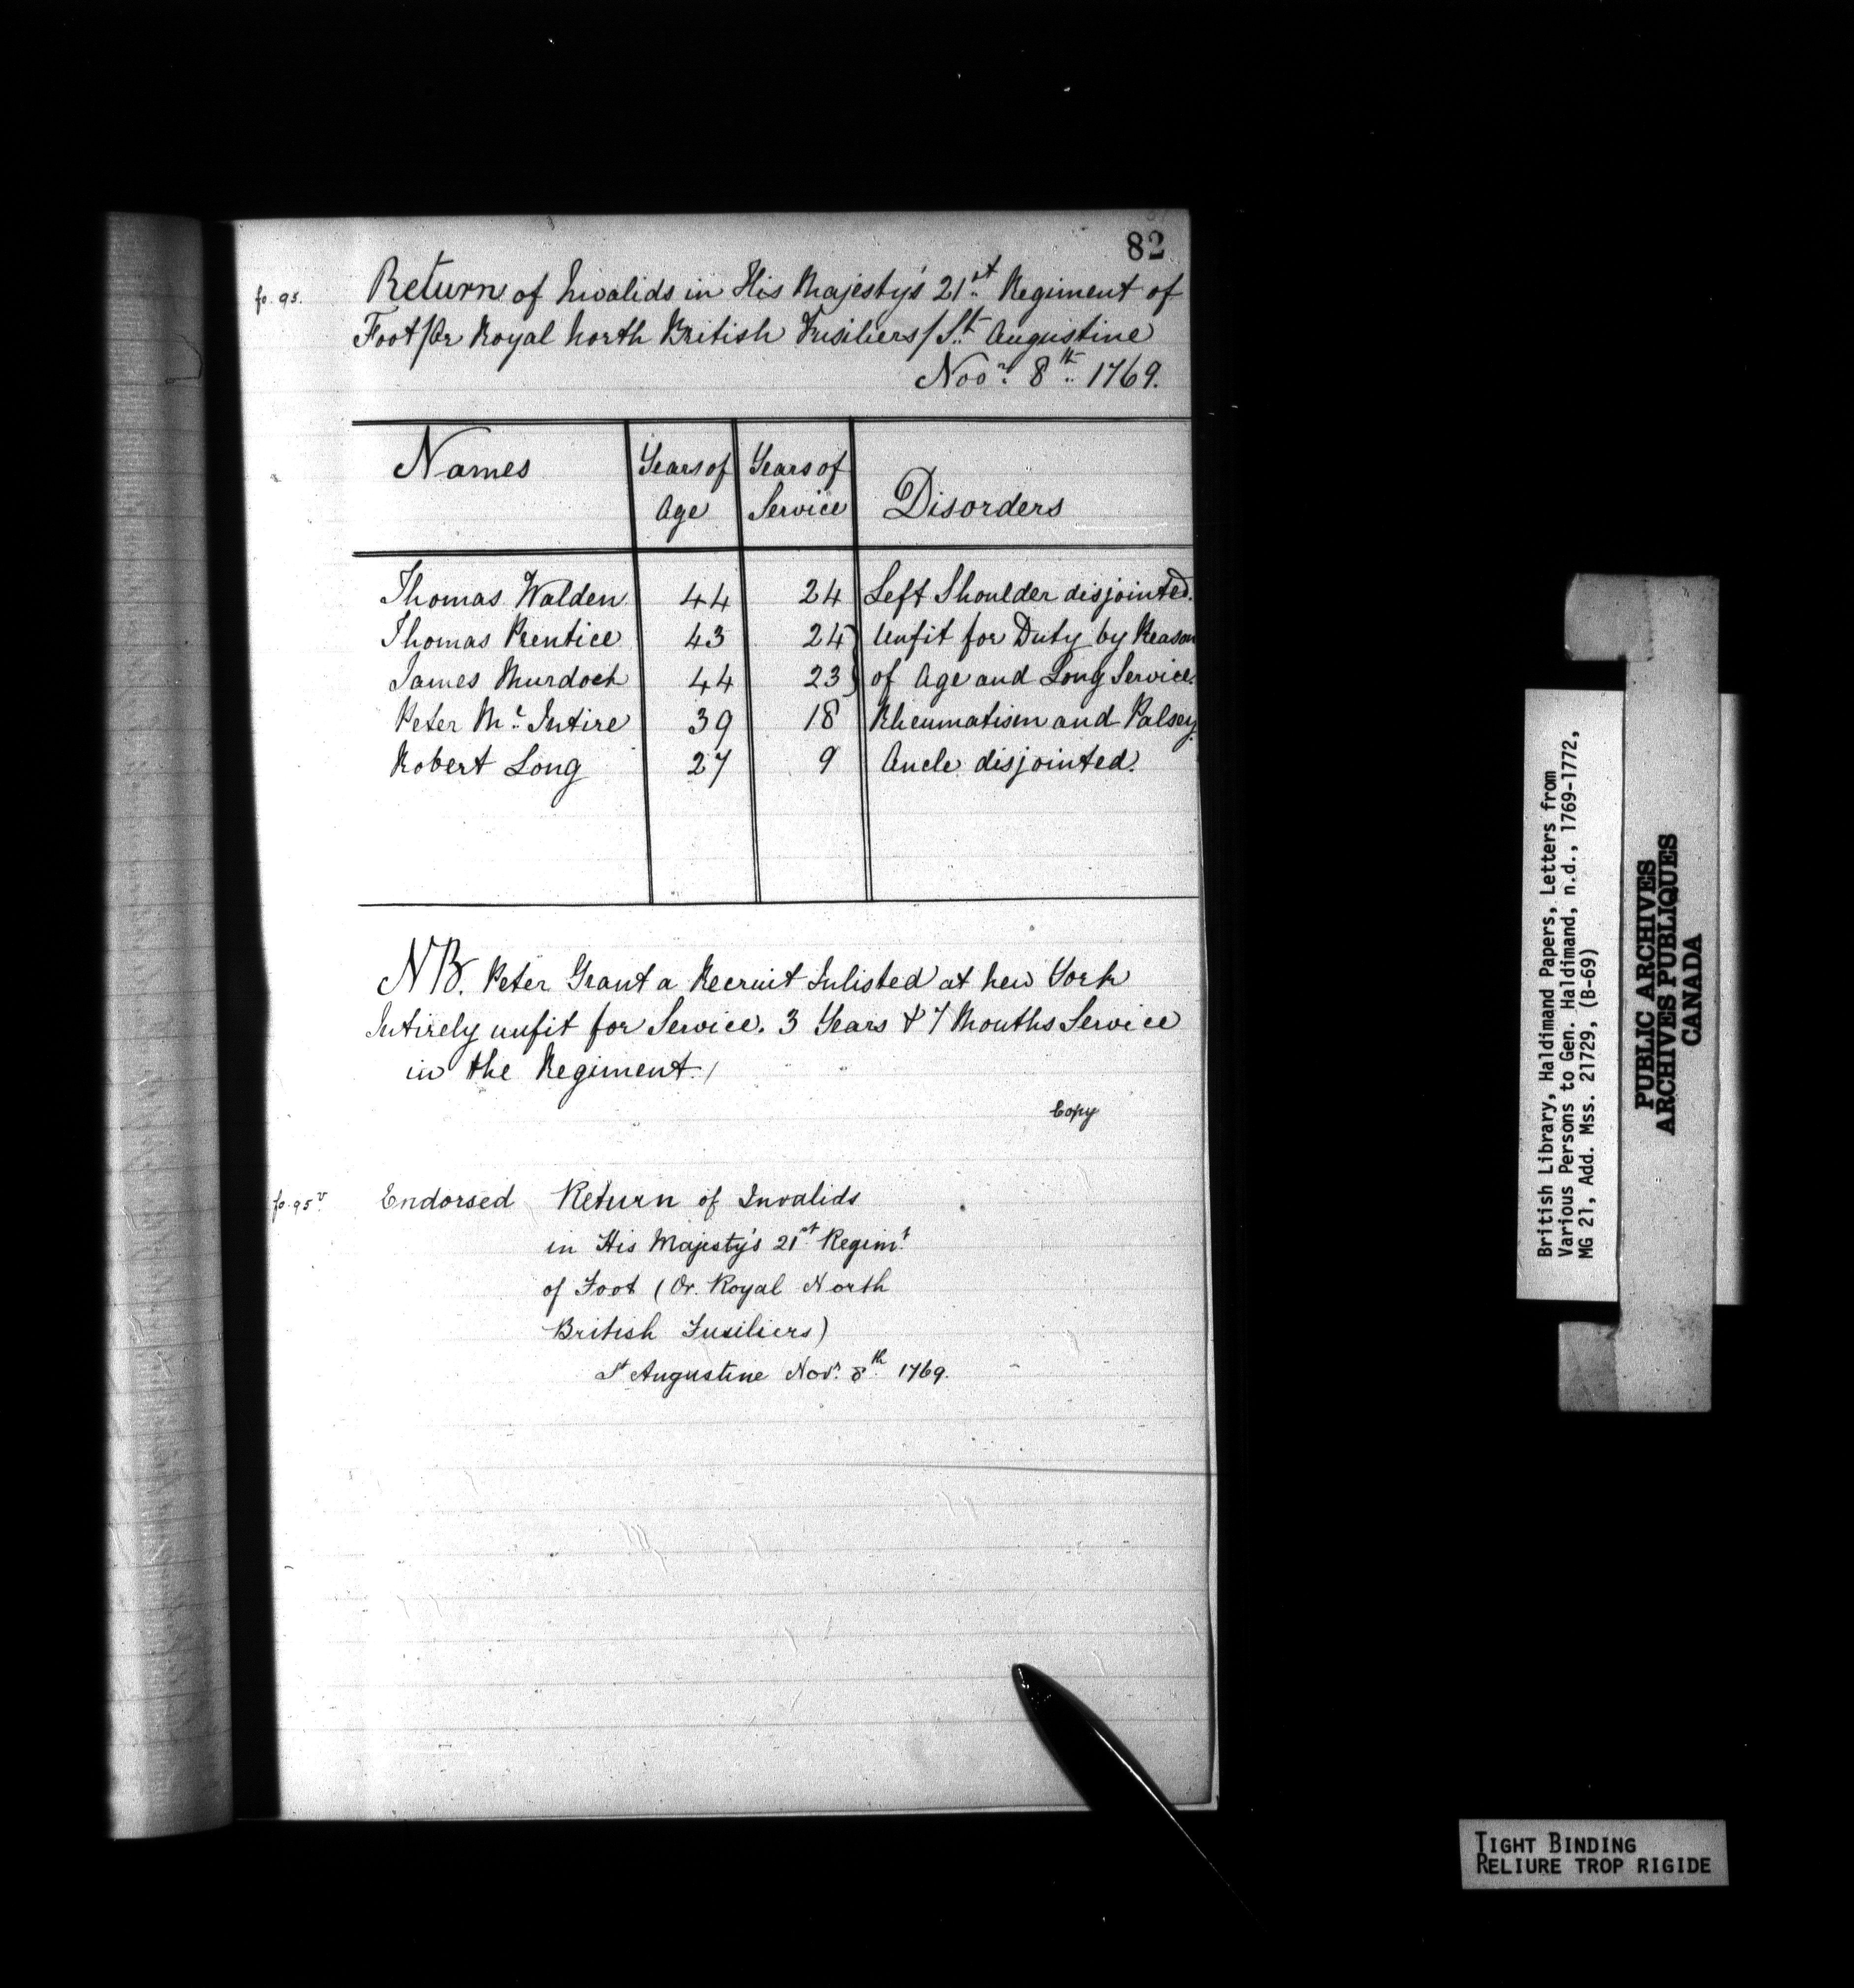 82
fo. 95.
Return of Invalids in His Majesty's 21st Regiment of
Foot/Or Royal North British Fusiliers/St Augustine
Novr. 8th 1769.
Names | Years of Age | Years of Service | Disorders
Thomas Walden 44 24 Left Shoulder disjointed.
Thomas Prentice 43 24 } Unfit for Duty by Reason
James Murdoch 44 23 } of Age and Long Service.
Peter Mc. Intire 39 18 Rheumatism and Palsey.
Robert Long 27 9 Ancle disjointed.
NB. Peter Grant a Recruit Inlisted at New York
Intirely unfit for Service. 3 Years & 7 Months Service
in the Regiment./
Copy
fo. 95 v
Endorsed Return of Invalids
in His Majesty's 21st Regimt
of Foot (Or Royal North
British Fusiliers)
St Augustine Novr. 8th 1769.
British Library, Haldimand Papers, Letters from
Various Persons to Gen. Haldimand, n.d., 1769-1772,
MG 21, Add. Mss. 21729, (B-69)
PUBLIC ARCHIVES
ARCHIVES PUBLIQUES
CANADA
TIGHT BINDING
RELIURE TROP RIGIDE